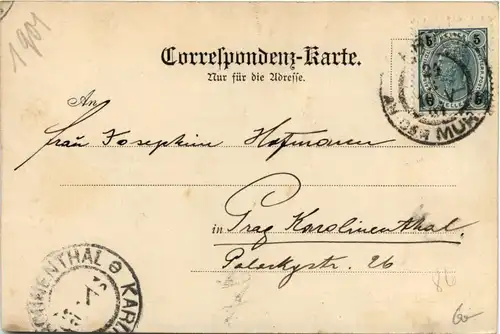 1901
Correspondenz-Karte.
Nur für die Adresse.
An
Frau Josephine Hofmann
in Prag Karolinenthal
Palackystr. 26
MUR
KAR
86